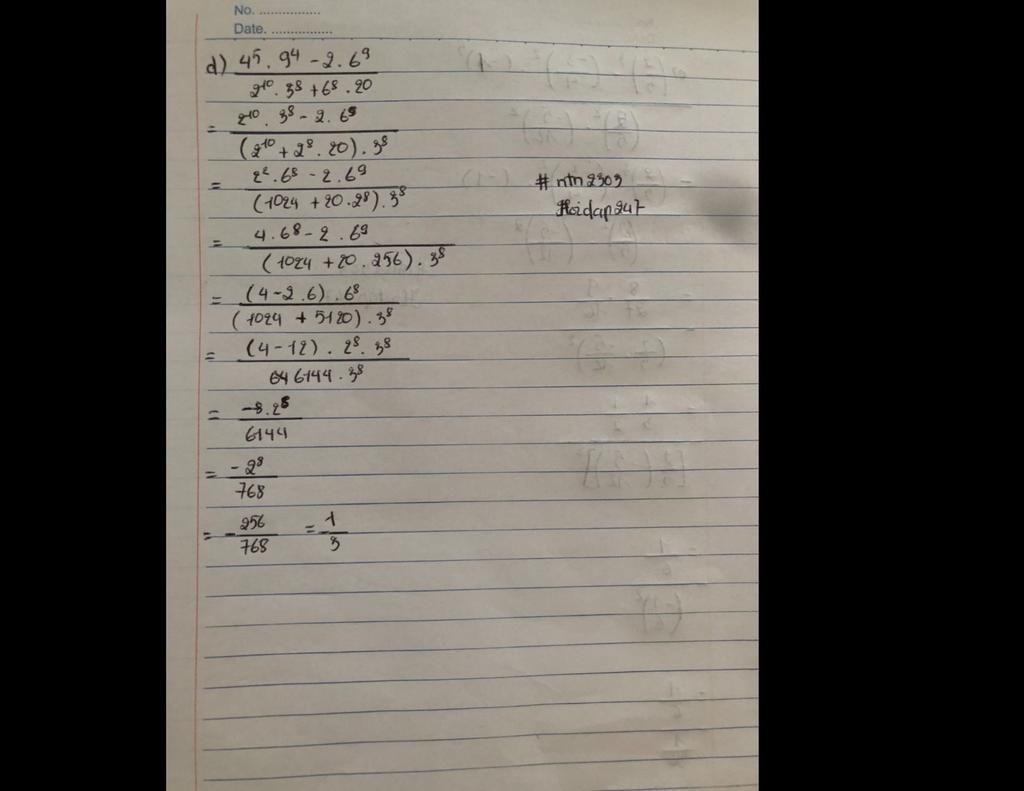 No. ................
Date. ................
d) \frac{4^5 . 9^4 - 2 . 6^9}{2^{10} . 3^8 + 6^8 . 20}
= \frac{2^{10} . 3^8 - 2 . 6^9}{(2^{10} + 2^8 . 20) . 3^8}
= \frac{2^2 . 6^8 - 2 . 6^9}{(1024 + 20 . 2^8) . 3^8} # ntn2303
= \frac{4 . 6^8 - 2 . 6^9}{(1024 + 20 . 256) . 3^8} Hoidap247
= \frac{(4 - 2 . 6) . 6^8}{(1024 + 5120) . 3^8}
= \frac{(4 - 12) . 2^8 . 3^8}{6144 . 3^8}
= \frac{-8 . 2^8}{6144}
= \frac{-2^8}{768}
= -\frac{256}{768} = \frac{-1}{3}